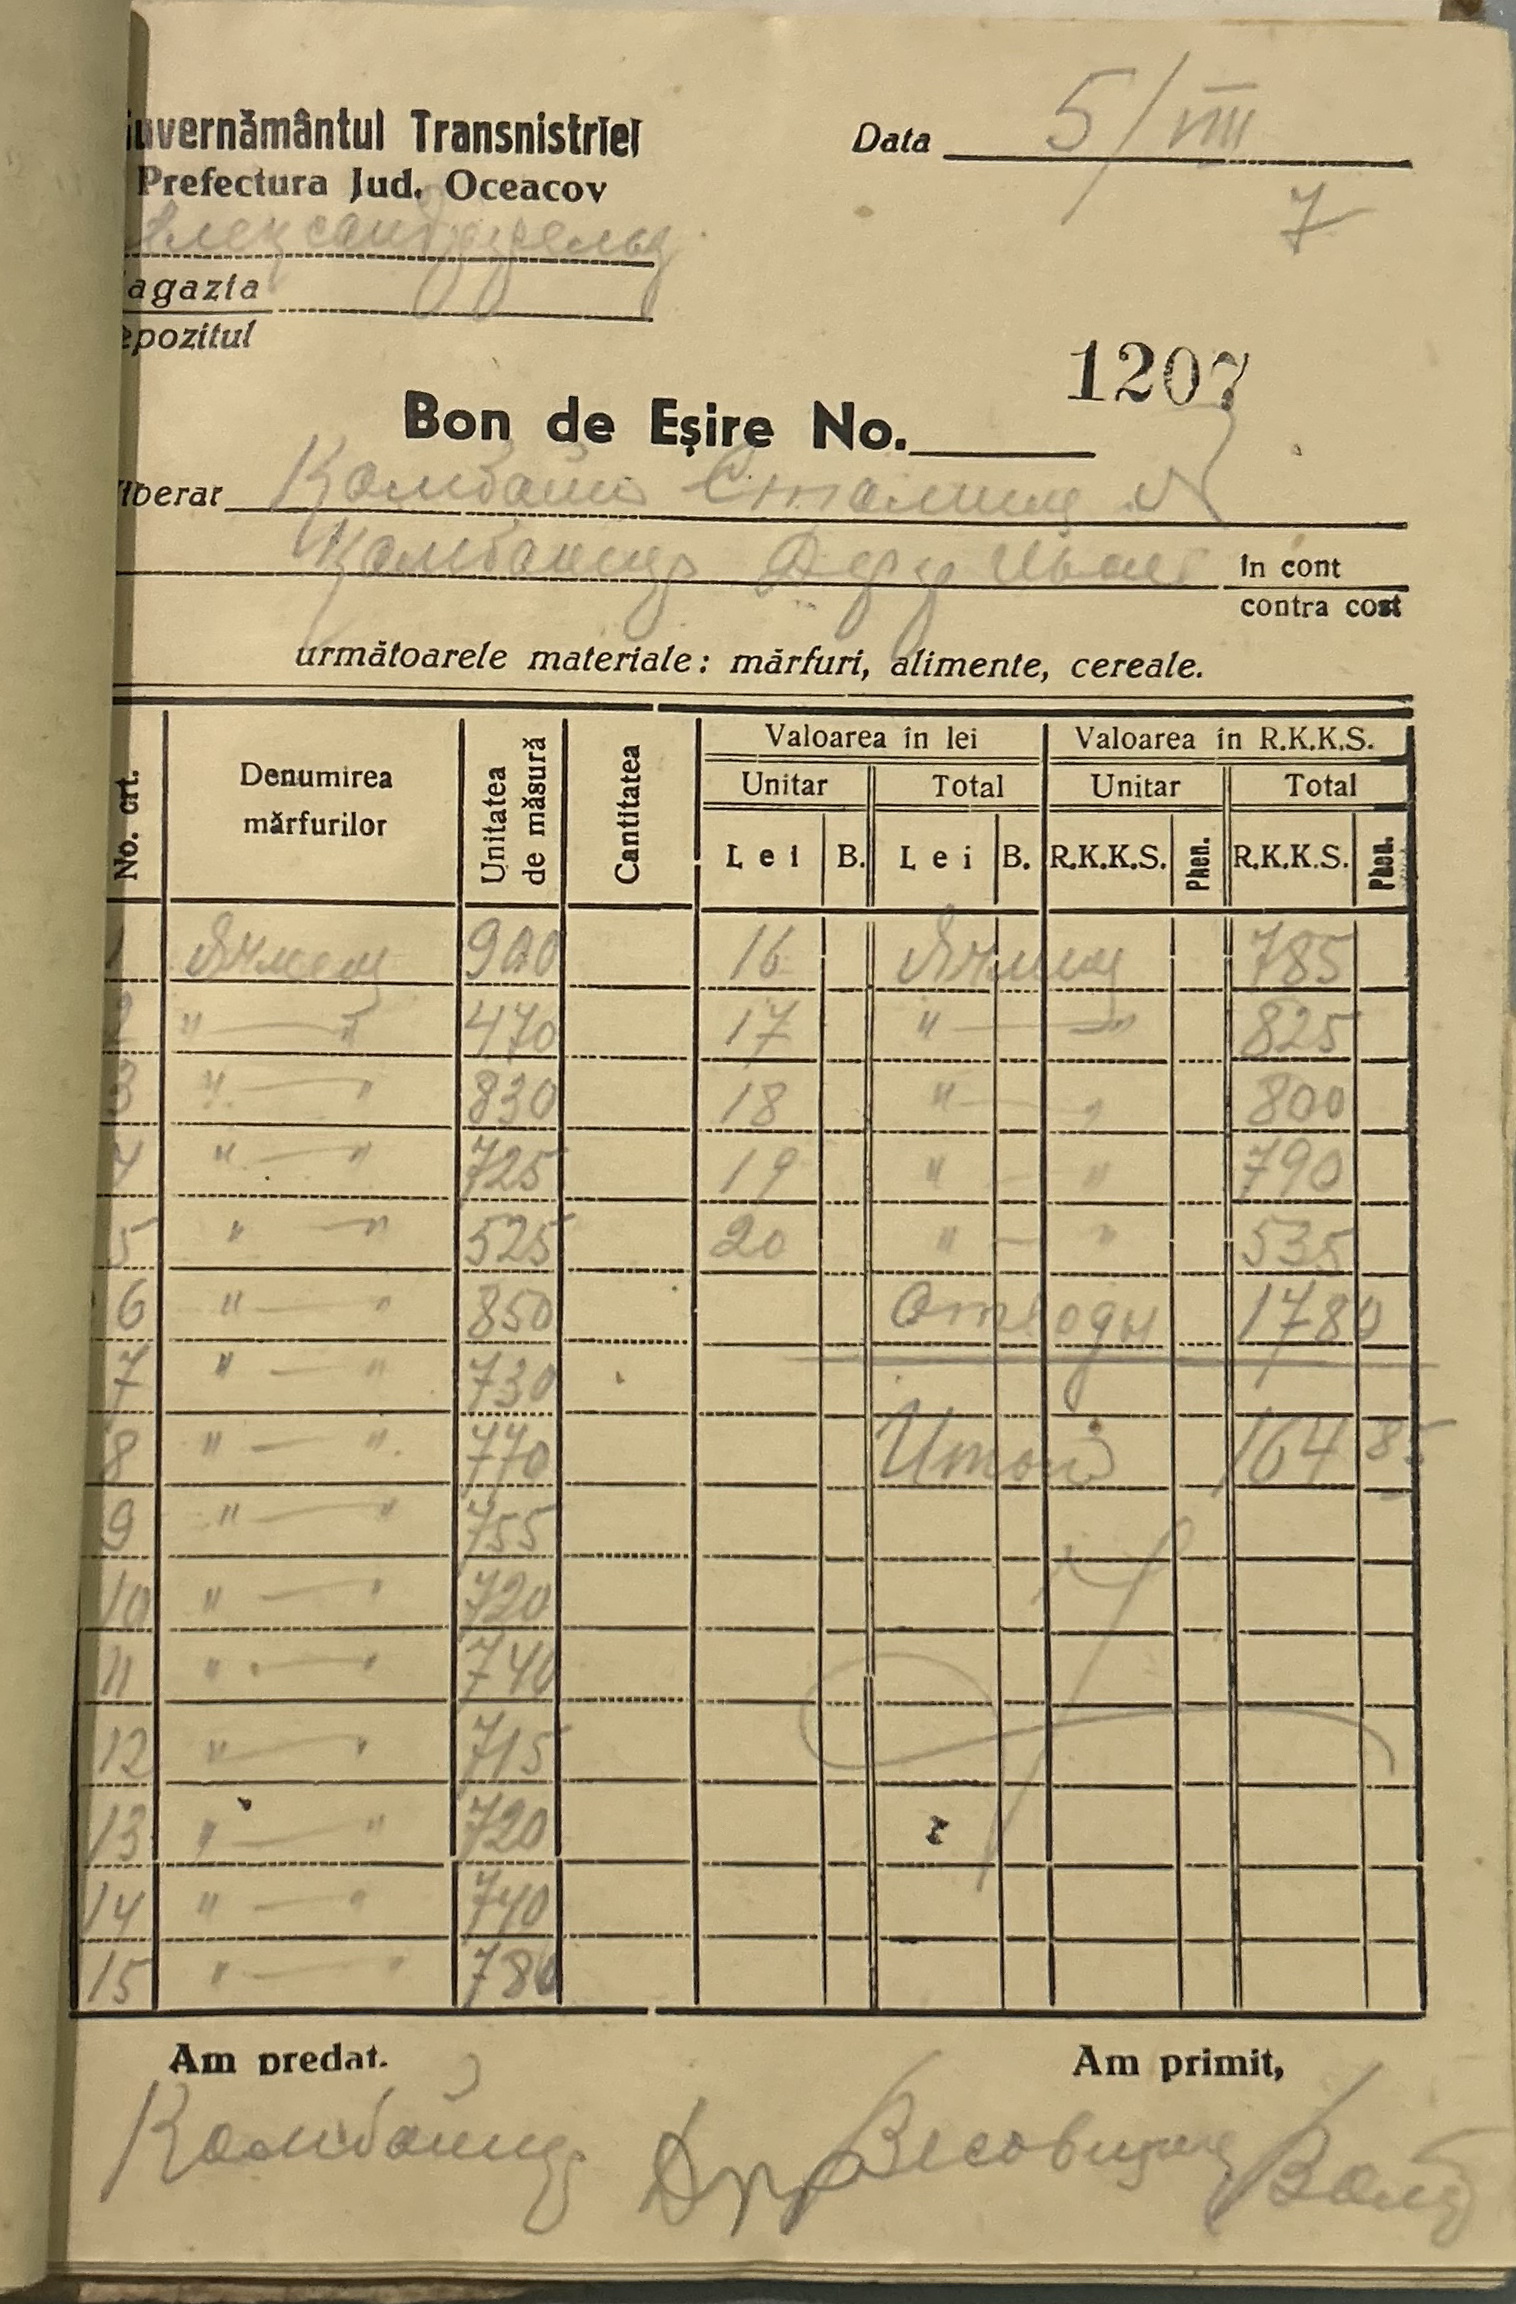 uvernământul Transnistriei
Prefectura Jud. Oceacov
Data 5/VIII
7
agazia
epozitul
1207
Bon de Eşire No.
liberat Комбайн Сталинец N
Комбайнер Иван în cont
contra cost
următoarele materiale: mărfuri, alimente, cereale.
No. crt. Denumirea mărfurilor Unitatea de măsură Cantitatea Valoarea în lei Valoarea în R.K.K.S.
Unitar Total Unitar Total
Lei B. Lei B. R.K.K.S. Phen. R.K.K.S. Phen.
1 Ячмень 900 16 Ячмень 785
2 " — " 470 17 " — " 825
3 " — " 830 18 " — " 800
4 " — " 725 19 " — " 790
5 " — " 525 20 " — " 535
6 " — " 850 Отходы 1780
7 " — " 730
8 " — " 770 Итого 16485
9 " — " 755
10 " — " 720
11 " — " 740
12 " — " 715
13 " — " 720
14 " — " 740
15 " — " 780
Am predat. Am primit,
Комбайнер Весовщик